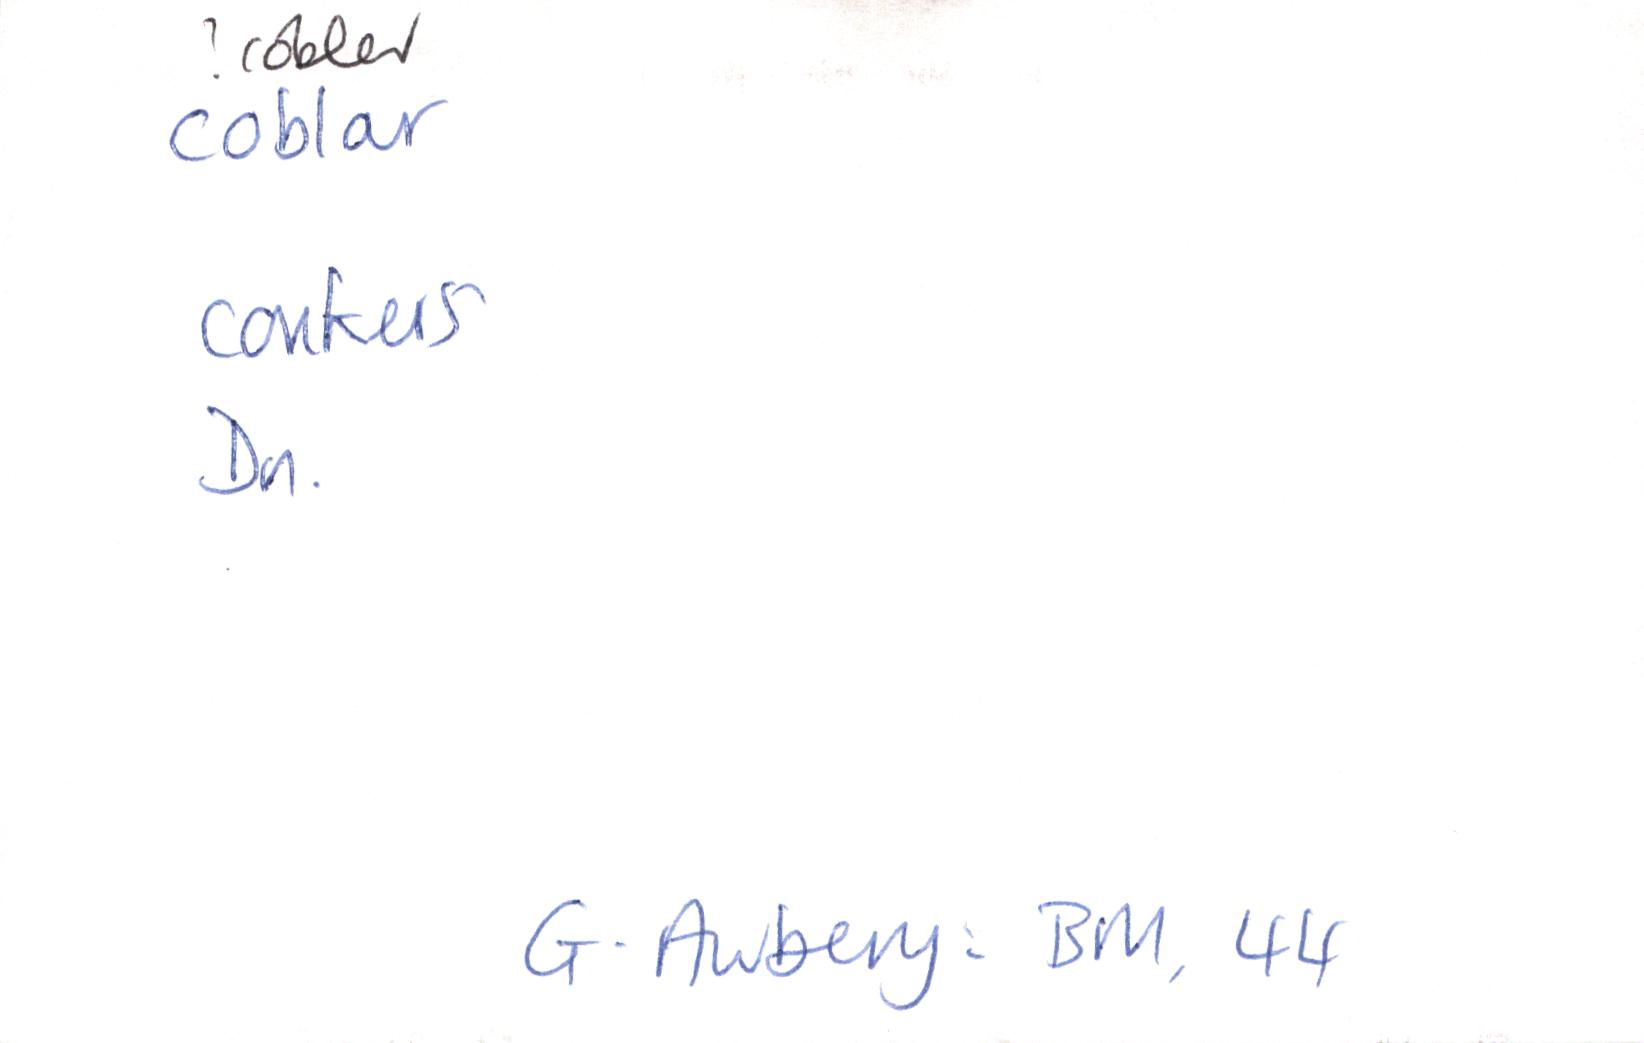 ? cobler
coblar
conkers
Dn.
G. Awbery: BM, 44